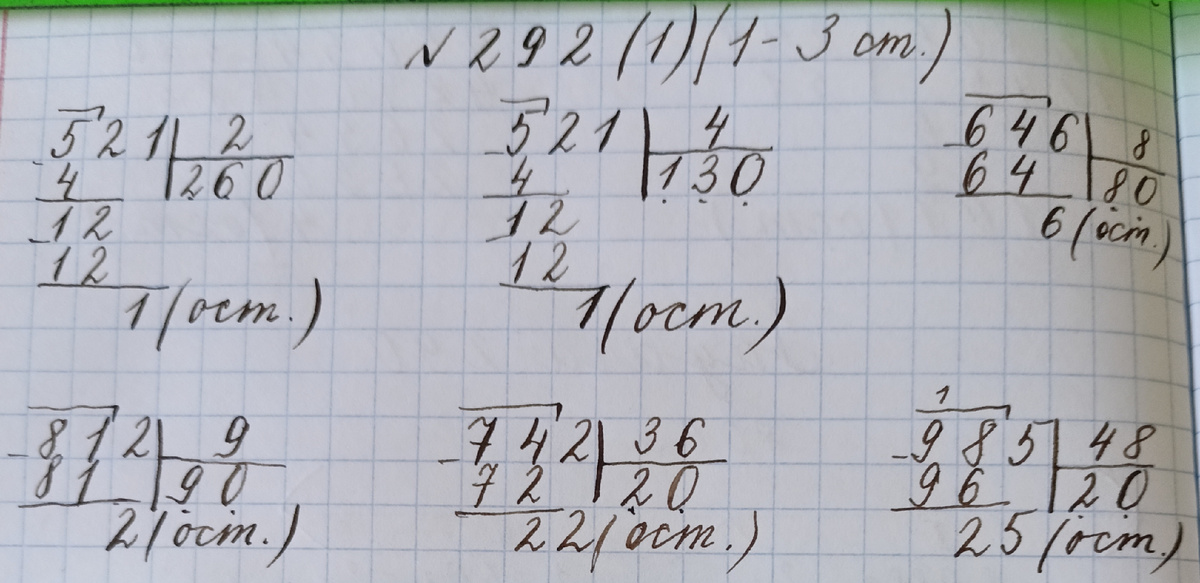 №292 (1)(1-3 ст.)
521 2
4 260
12
12
1 (ост.)
521 4
4 130
12
12
1 (ост.)
646 8
64 80
6 (ост.)
812 9
81 90
2 (ост.)
742 36
72 20
22 (ост.)
1
985 48
96 20
25 (ост.)